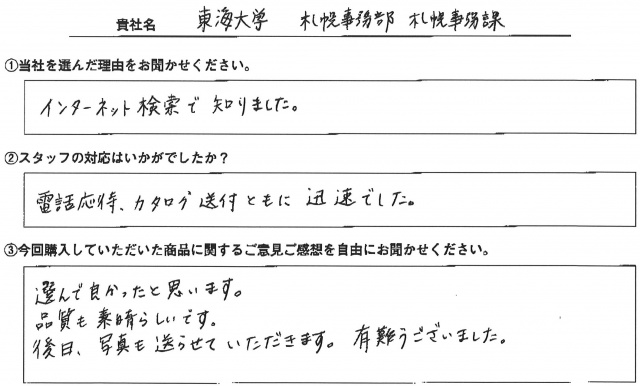 貴社名 東海大学 札幌事務部 札幌事務課
①当社を選んだ理由をお聞かせください。
インターネット検索で知りました。
②スタッフの対応はいかがでしたか？
電話応待、カタログ送付ともに迅速でした。
③今回購入していただいた商品に関するご意見ご感想を自由にお聞かせください。
選んで良かったと思います。
品質も素晴らしいです。
後日、写真も送らせていただきます。有難うございました。